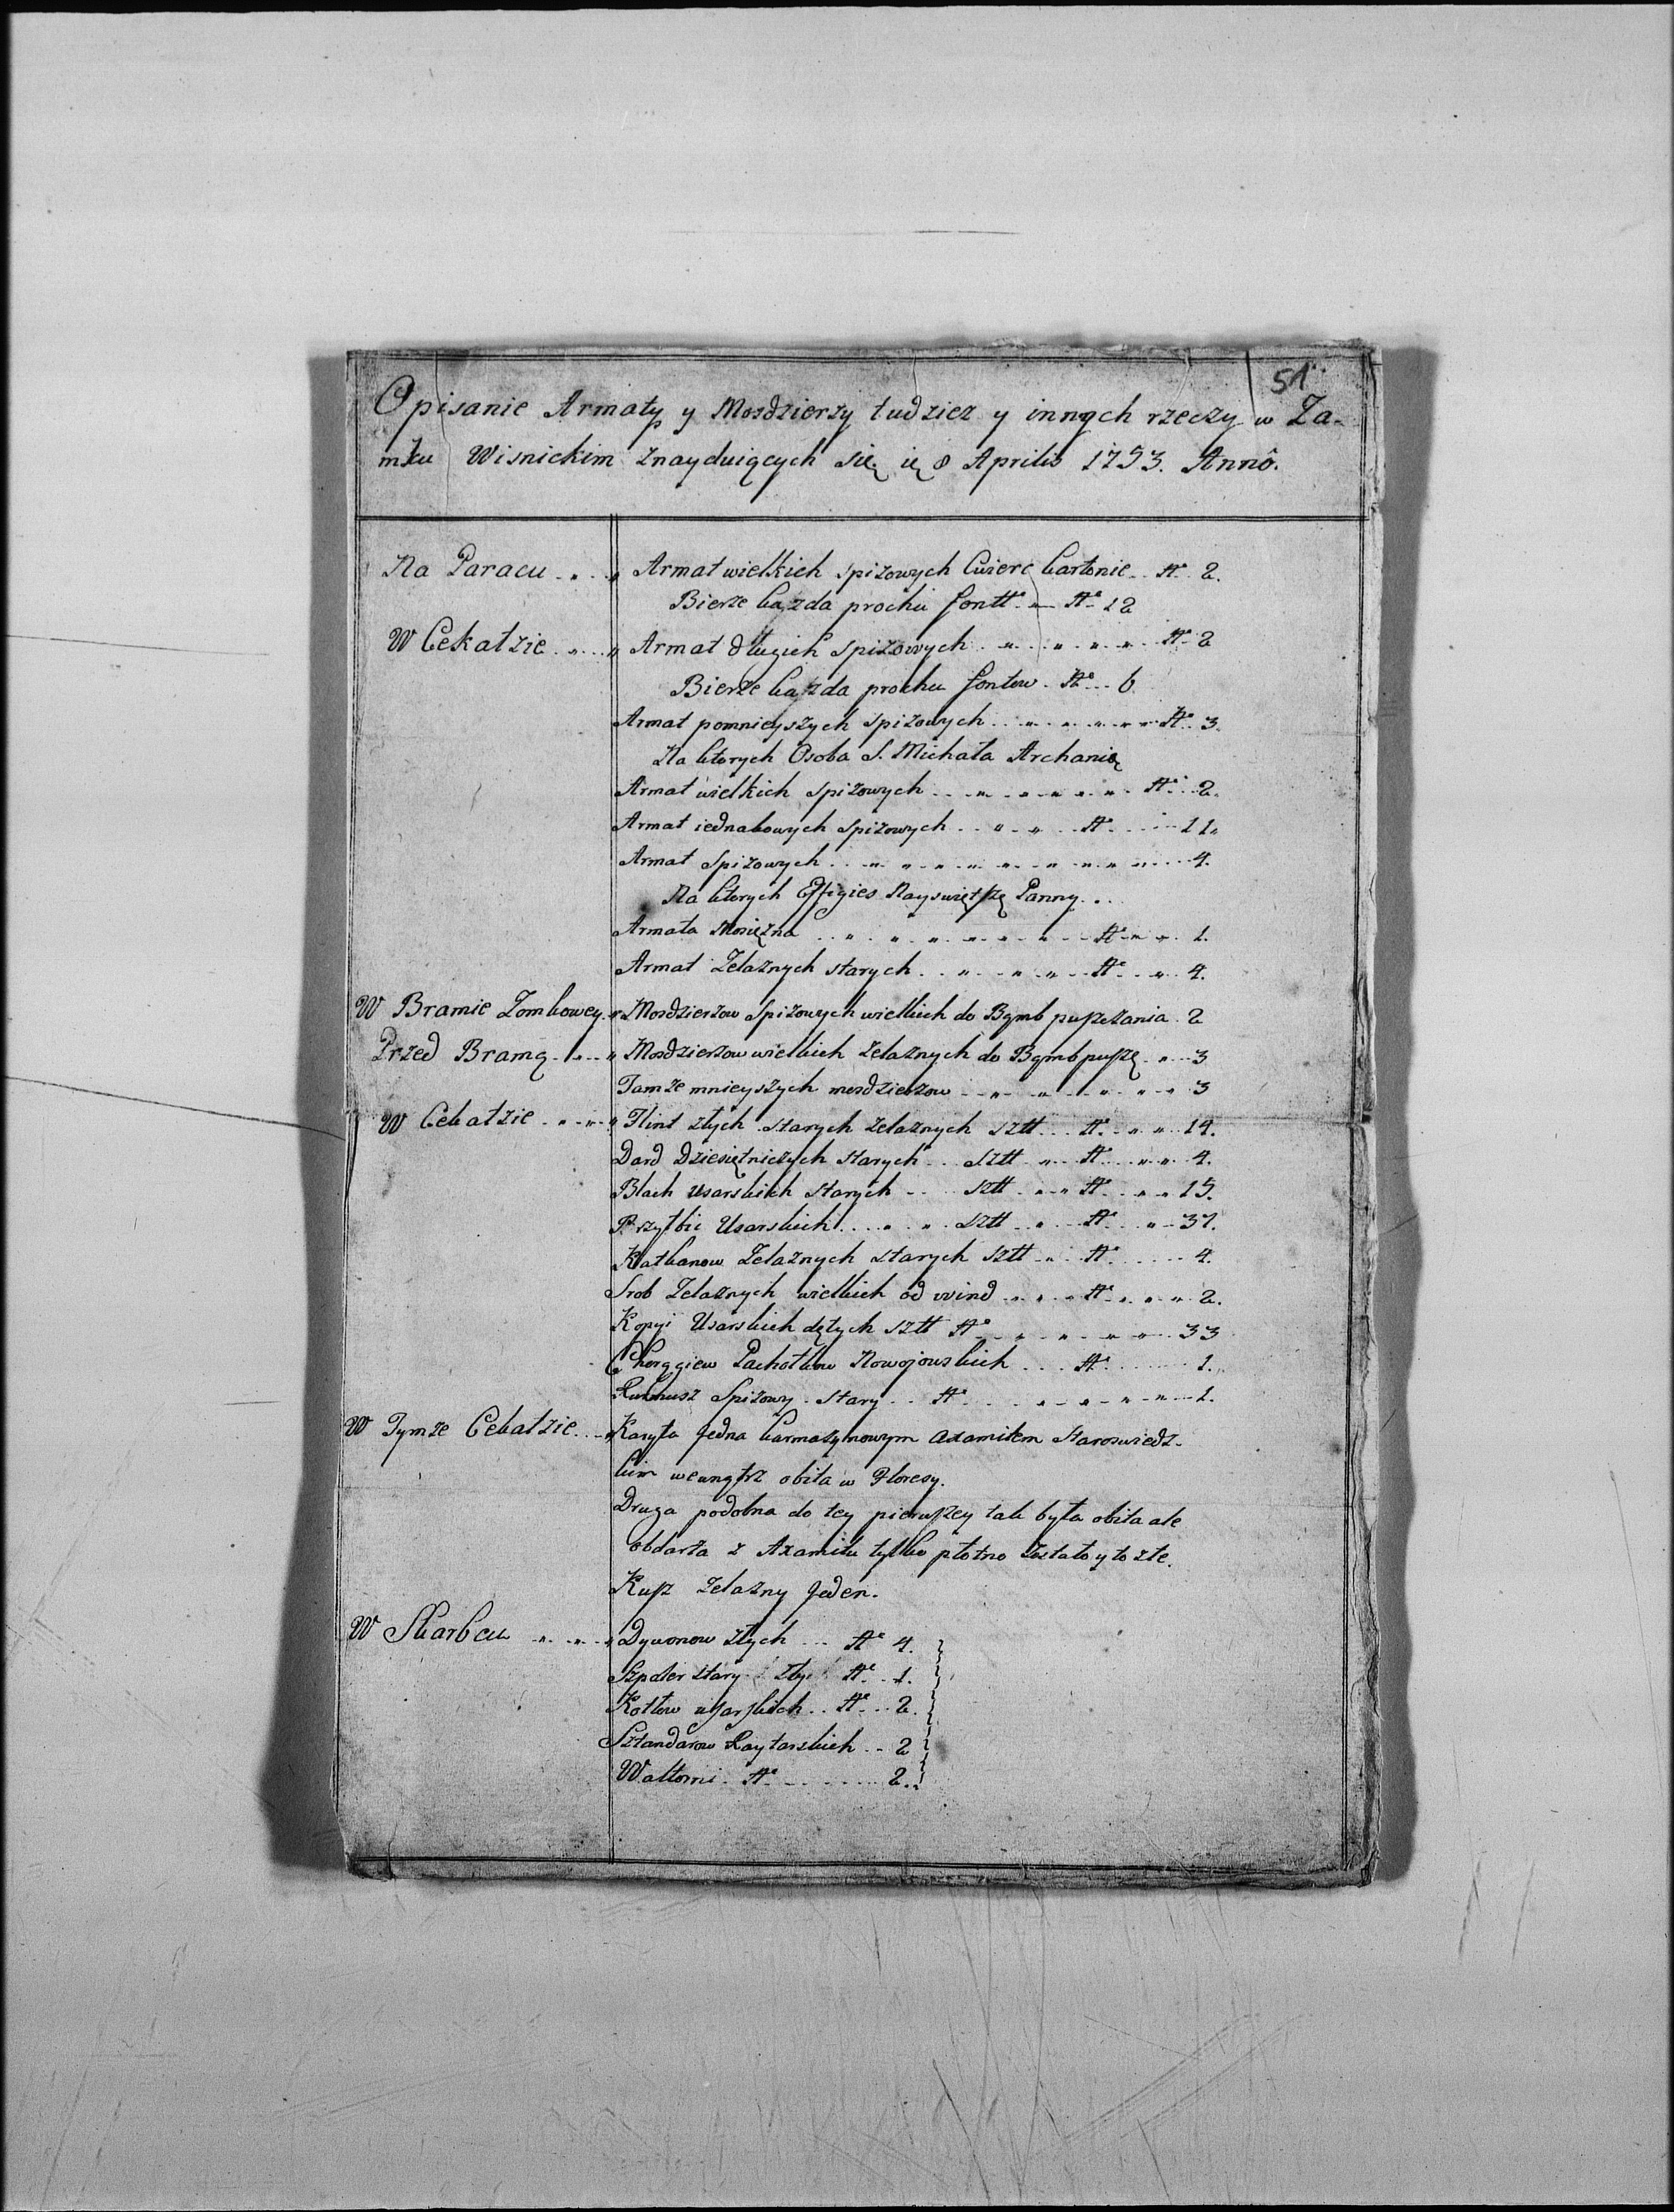 51
Opisanie Armaty y Mozdzierzy tudziez y innych rzeczy w Za-
mku Wisnickim znayduiących się 8 Aprilis 1753. Annô.
Na Paracu Armat wielkich Spizowych Cwierc Cartonie No 2.
Bierze kazda prochu fontt No 12
W Cekatzie Armat długich Spizowych No 2
Bierze kazda prochu fontow No 6
Armat pomnieyszych Spizowych No 3.
Na ktorych Osoba S. Michała Archanio
Armat wielkich Spizowych No 2.
Armat iednakowych Spizowych No 11.
Armat Spizowych 4.
Na ktorych Effigies Nayswiętszę Panny
Armata Mosięzna No 1.
Armat Zelaznych starych No 4.
W Bramie Zomkowey Mozdzierzow Spizowych wielkich do Bąmb puszczania 2
Przed Bramą Mozdzierzow wielkich zelaznych do Bąmb puszę 3
Tamze mnieyszych mozdzierzow 3
W Cekatzie Flint złych starych zelaznych sztt No 14.
Dard Dziesiętniczych starych sztt No 4.
Blach usarskich starych sztt No 15.
Przyłbic Usarskich sztt No 37.
Katkanow Zelaznych starych sztt No 4.
Srob Zelaznych wielkich od wind No 2.
Kopyi Usarskich dętych sztt No 33
Chorągiew Pachołkow Nowojowskich No 1.
Spizowy Stary No 1.
W Tymze Cekatzie Karyta Jedna karmazynowym axamitem staroswiedz-
kim wewnątrz obita w Floresy.
Druga podobna do tey pierwszey tak była obita ale
obdarta z Axamitu tylko płotno zostało y to złe.
Kusz zelazny Jeden.
W Skarbcu Dywonow złych No 4.
Szpaler stary zły No 1.
Kotłow usarskich No 2.
Sztandarow Raytarskich 2
Waltorni No 2.